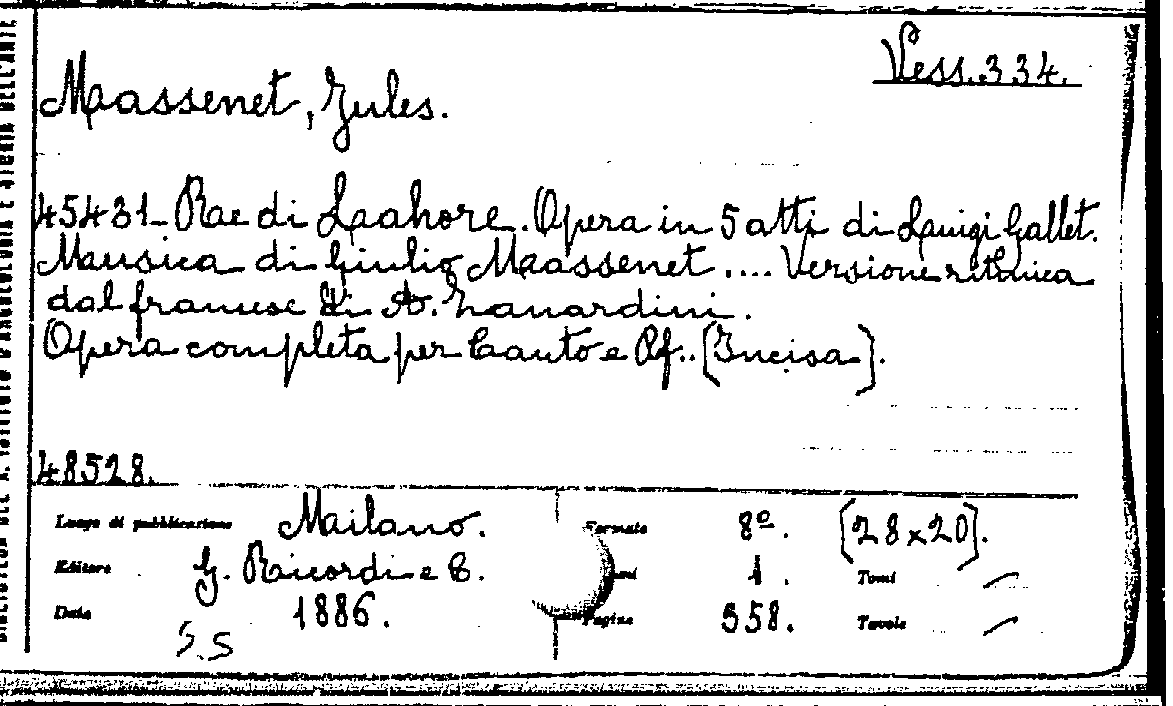 Vess. 334.
Massenet, Jules.
45431 - Re di Lahore. Opera in 5 atti di Luigi Gallet.
Musica di Giulio Massenet .... Versione ritmica
dal francese di A. Zanardini.
Opera completa per Canto e Pf.. [Incisa].
48528.
Luogo di pubblicazione Milano. Formato 8º. [28x20].
Editore G. Ricordi e C. 1. Tomi
Data 1886. Pagine 358. Tavole
S.S
BIBLIOTECA DEL R. ISTITUTO D'ARCHEOLOGIA E STORIA DELL'ARTE